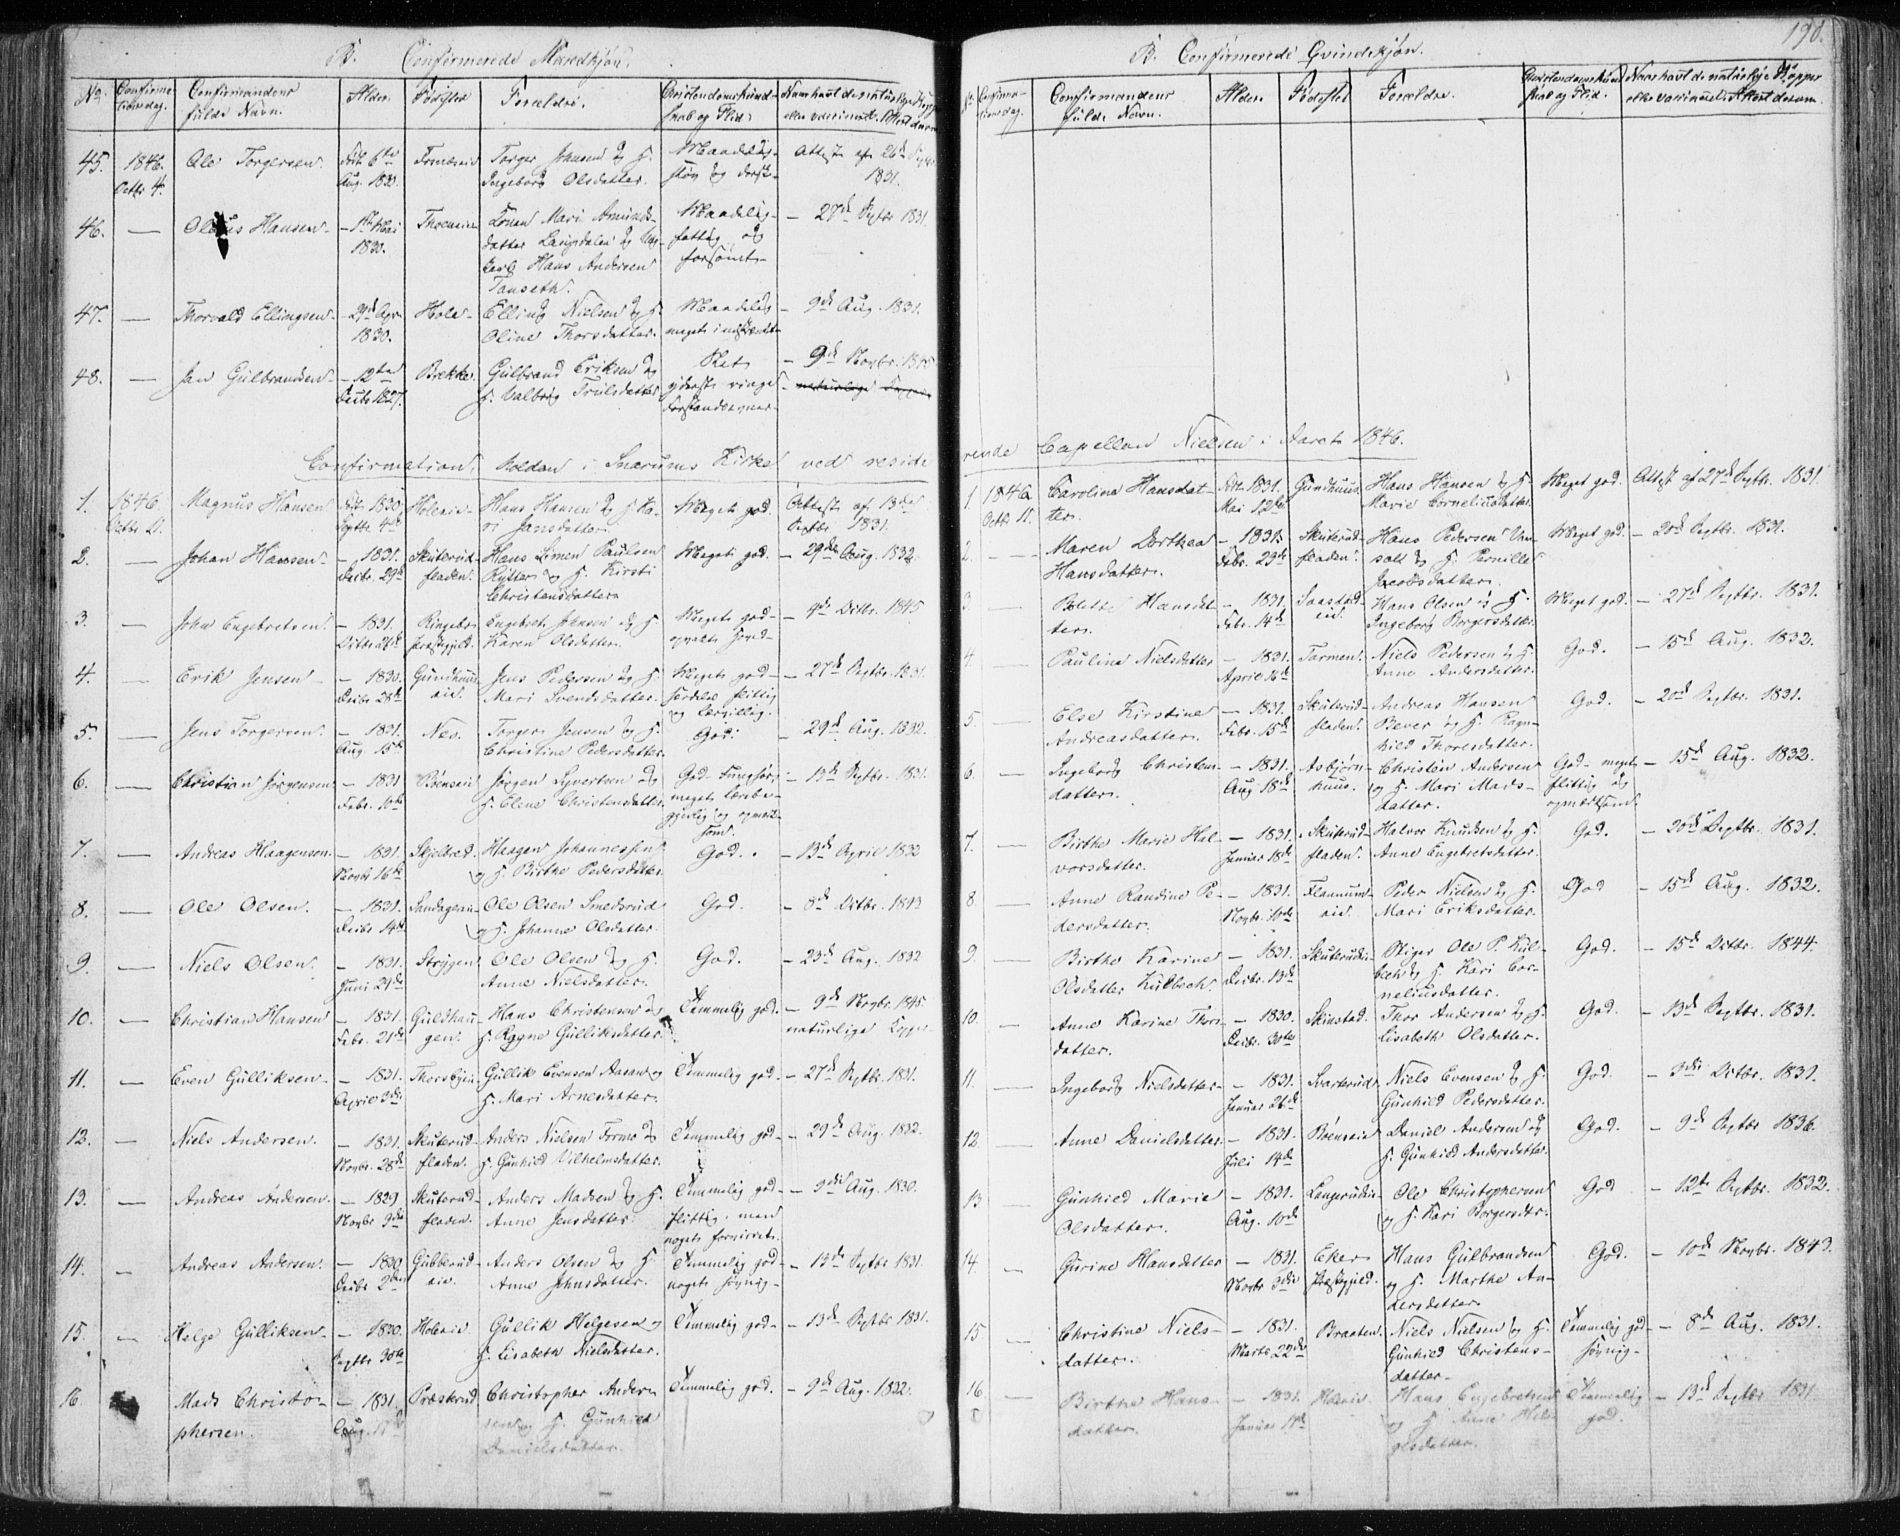 B. Confirmerede Mandkjøn.
No.
Confirmationsdag.
Confirmandens fulde Navn.
Alder.
Fødested
Forældre.
Christendomskundskab og Flid.
Naar havt de naturlige Kopper eller vaccineret. Attest derom.
45. 1846. Octbr 4. Ole Torgersen. Født 6te Aug. 1831. Torger Johnsen og H. Ingeborg Olsdatter. Maadelig. Attest af 26de Septbr 1831.
46. — Hansen — 1ste Mai 1830. Mari Amunds-
datter og
Hans Andersen
Maadelig — 27de Septbr 1831.
47. — Thorvald Ellingsen — Apr 1830. Hole Elling Nielsen og H. Oline Thorsdatter. Maadelig — 9de Aug. 1831.
48. — Jan Gulbrandsen — 12te Decbr 1827. Brekke Gulbrand Eriksen og H. Valborg Trulsdatter Ret yderst ringe Forstandsevner — 9de Novbr. 1845
naturlige Kopper
Confirmation, holden i Snarums Kirke ved reside
1. 1846 Octbr 11. Magnus Hansen Født 1830 Septbr 4de Holeeie Hans Hansen og H. Kari Jansdatter Meget god. Attest af 13de Septbr 1831.
2. — Johan Hansen — 1831. Decbr. 29de Skuterudfladen. Hans Simen Paulsen og H. Kirsti Christensdatter Meget god — 29de Aug. 1832.
3. — John Engebretsen — 1831. Ringebo Præstegjeld. Engebret Johnsen og H. Karen Olsdatter. Meget god — 4de Octbr. 1845
4. — Erik Jensen — 1830. Decbr 28de Jens Pedersen og H. Mari Svendsdatter. Meget god — særdeles flittig og lærvillig. — 27de Septbr. 1831.
5. — Jens Torgersen — 1831. Aug. 15de Nes. Torger Jensen og H. Christine Pedersdatter God. — 29de Aug. 1832.
6. — Christian Jørgensen — 1831 Febr. 10de Bøenseie Jørgen Syvertsen og H. Elene Christensdatter God — meget lærebegjerlig og opmærksom. — 13de Septbr. 1831.
7. — Andreas Haagensen — 1831. Novbr 16de Skjelbred Haagen Johannessen og H. Birthe Pedersdatter God. — 13de April 1832
8. — Ole Olsen. — 1831. Decbr 14de Ole Olsen Smedsrud og H. Johanne Olsdatter. God. — 8de Octbr. 1843
9. — Niels Olsen. — 1831. Juni 29de Strygen Ole Olsen og H. Anne Nielsdatter. God. — 23de Aug. 1832
10. — Christian Hansen — 1831. Febr. 21de Guldhaugen. Hans Christensen og H. Ragne Gulliksdatter. Temmelig god. — 9de Novbr. 1845 naturlige Kopper
11. — Even Gulliksen — 1831. April 3die Thorsbyeie Gullik Evensen Aasen og H. Mari Arnesdatter. Temmelig god. — 27de Septbr. 1831.
12. — Niels Andersen. — 1831. Novbr. 28de Skuterudfladen. Anders Nielsen Formo og H. Gunhild Vilhelmsdatter. Temmelig god — 29de Aug. 1832.
13. — Andreas Andersen — 1829 Novbr 9de Skuterudfladen. Anders Madsen og H. Anne Jensdatter. Temmelig god — flittig, men noget fornærmet — 9de Aug. 1830.
14. — Andreas Andersen. — 1830 Decbr 2den Gubberudeie. Anders Olsen og H. Anne Johnsdatter. Temmelig god — noget søvnig — 13de Septbr 1831.
15. — Helge Gulliksen — 1830. Septbr 30te Holeeie. Gullik Helgesen og H. Lisabeth Nielsdatter. Temmelig god — 13de Septbr 1831.
16. Mads Christophersen. — 1831. Aug. Præsterud Christopher Andersen og H. Gunhild Danielsdatter. Temmelig god. — 9de Aug. 1832.
190.
B. Confirmerede Qvindekjøn.
No.
Confirmationsdag.
Confirmandens fulde Navn.
Alder.
Fødested
Forældre.
Christendomskundskab og Flid.
Naar havt de naturlige Kopper eller vaccineret. Attest derom.
rende Capellan Nielsen i Aaret 1846.
1. 1846 Octbr 11. Carolina Hansdatter. Født 1831. Mai 12te Gundhuus Hans Hansen og H. Marie Corneliusdatter. Meget god. Attest af 27de Septbr. 1831.
2. — Maren Dorthea Hansdatter. — 1831. Febr. 23de Skuterudfladen. Hans Pedersen og H. Pernille Jacobsdatter. Meget god — 20de Septbr. 1831.
3 — Hansdatter. — 1831. Febr. 14de Hans Olsen og H. Ingeborg Borgersdatter. Meget god. — 27de Septbr. 1831.
4. — Pauline Nielsdatter — 1831. April 16de Tormen. Niels Pedersen og H. Anne Andersdatter. God. — 15de Aug. 1832.
5. — Else Kirstine Andreasdatter. — 1831. Febr. 15de Skuterudfladen. Andreas Hansen Bever og H. Ragnhild Thoresdatter. God. — 20de Septbr. 1831.
6. — Ingeborg Christensdatter. — 1831. Aug 18de Asbjørnhuus. Christen Andersen og H. Mari Madsdatter. God — meget flittig og opmærksom. — 15de Aug. 1832.
7. — Birthe Marie Halvorsdatter. — 1831. Januar 18de Skuterudfladen. Halvor Knudsen og H. Anne Engebretsdatter. God. — 20de Septbr. 1831.
8 — Anne Randine Pedersdatter. — 1831. Novbr. 10de Flaanumeie. Peder Nielsen og H. Mari Eriksdatter. God — 15de Aug. 1832.
9. — Birthe Karine Olsdatter Kulbech. — 1831. Decbr. 13de Skuterudeie Stiger Ole P. Kulbech og H. Kari Corneliusdatter. God. — 15de Octbr. 1844.
10. — Anne Karine Thorsdatter. — 1830. Decbr. 30te Skinstad. Thor Andersen og H. Lisabeth Olsdatter. God. — 13de Septbr. 1831.
11. — Ingeborg Nielsdatter — 1831. Januar 26de Svarterud Niels Evensen og H. Gunhild Pedersdatter. God. — 3die Octbr. 1831.
12. — Anne Danielsdatter — 1831. Juli 14de Bøenseie Daniel Andersen og H. Gunhild Andersdatter. God. — 9de Septbr 1836.
13. — Gunhild Marie Olsdatter. — 1831. Aug. 10de Langerudeie Ole Christophersen og H. Kari Borgersdtr. God — 12te Septbr. 1832.
14. — Gurine Hansdatter — 1831. Novbr 3die Eker Præstegjeld. Hans Gulbrandsen og H. Marthe Andersdatter God. — 10de Novbr. 1843.
15 — Christine Nielsdatter. — 1831. Marts 22de Braaten. Niels Nielsen og H. Gunhild Christensdatter. Temmelig god — søvnig. — 8de Aug. 1831.
16 — Birthe Hansdatter. — 1831. Januar 17de Holeeie Hans Engebretsen og H. Anne Helgesdatter. Temmelig god. — 13de Septbr 1831.